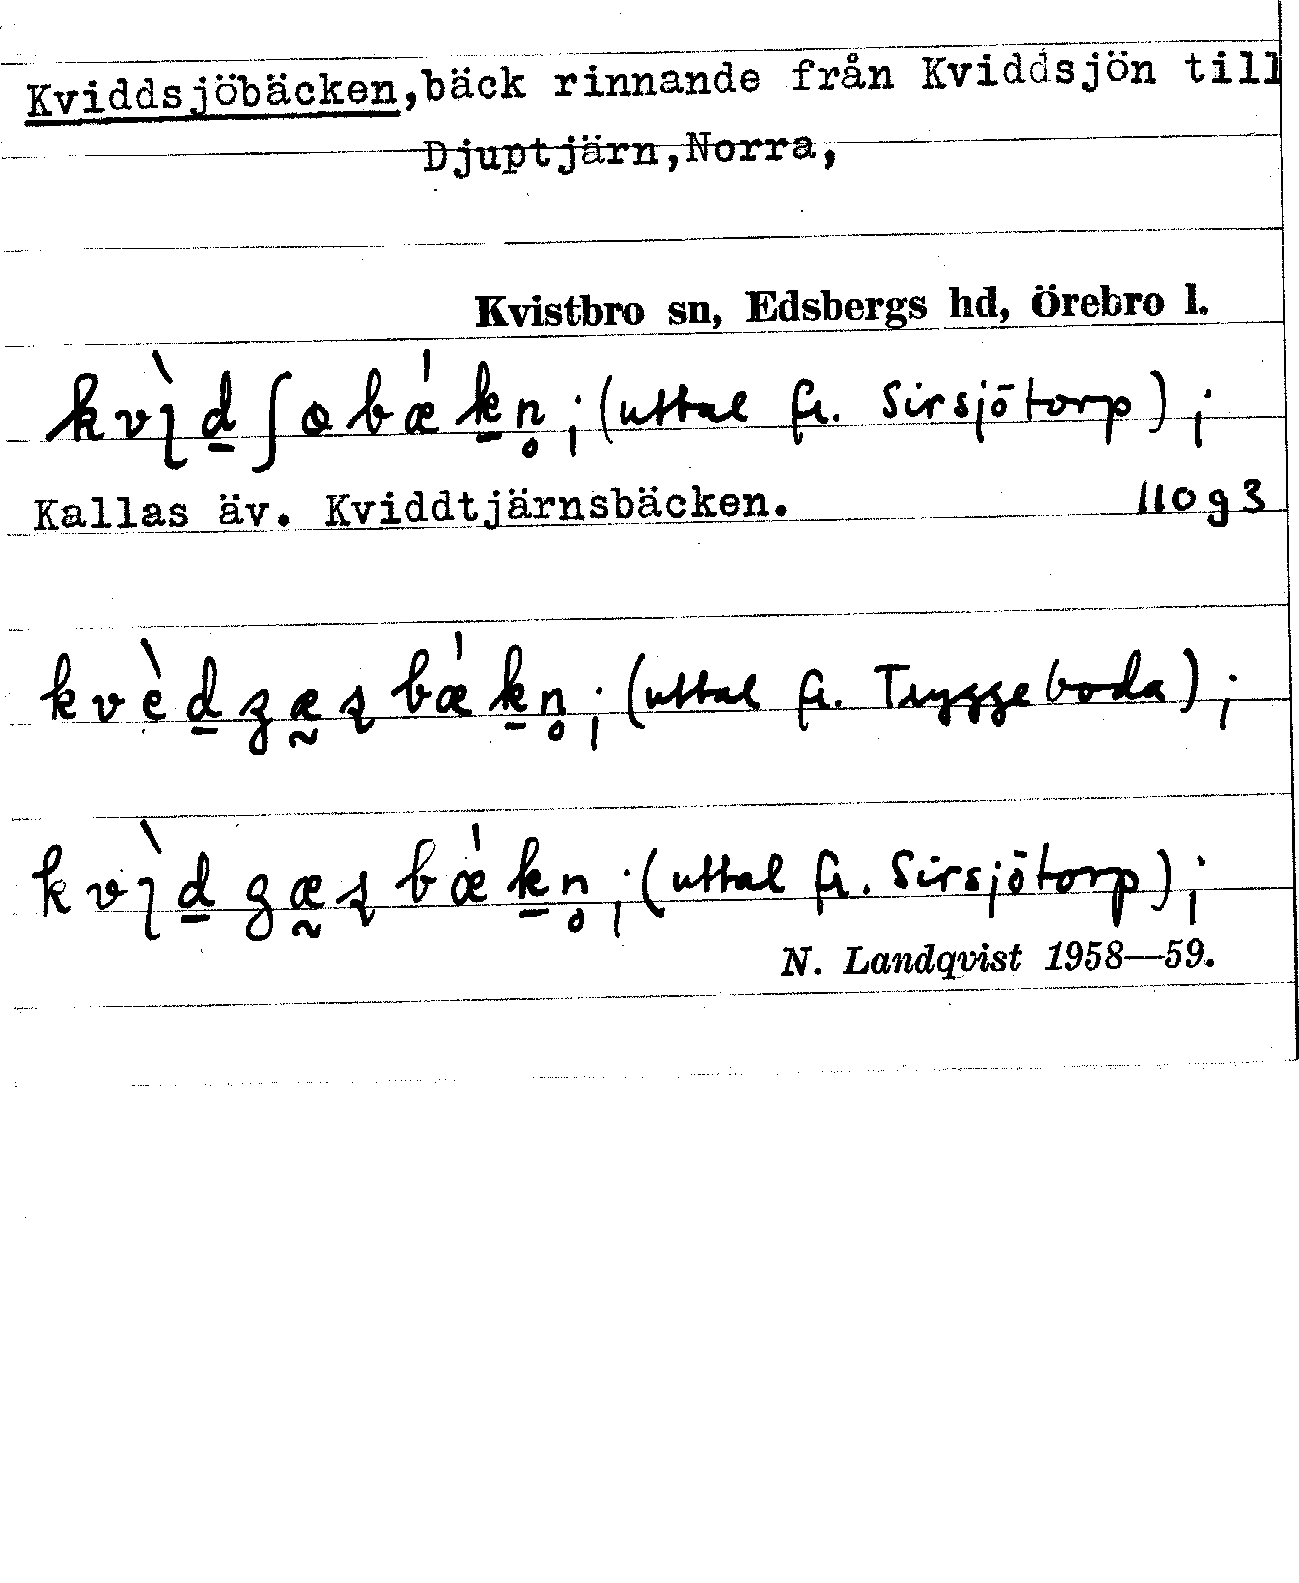 Kviddsjöbäcken,bäck rinnande från Kviddsjön till
Djuptjärn,Norra,
Kvistbro sn, Edsbergs hd, Örebro l.
(uttal fr. Sirsjötorp);
Kallas äv. Kviddtjärnsbäcken. 110 g 3
(uttal fr. Tryggeboda);
(uttal fr. Sirsjötorp);
N. Landqvist 1958—59.